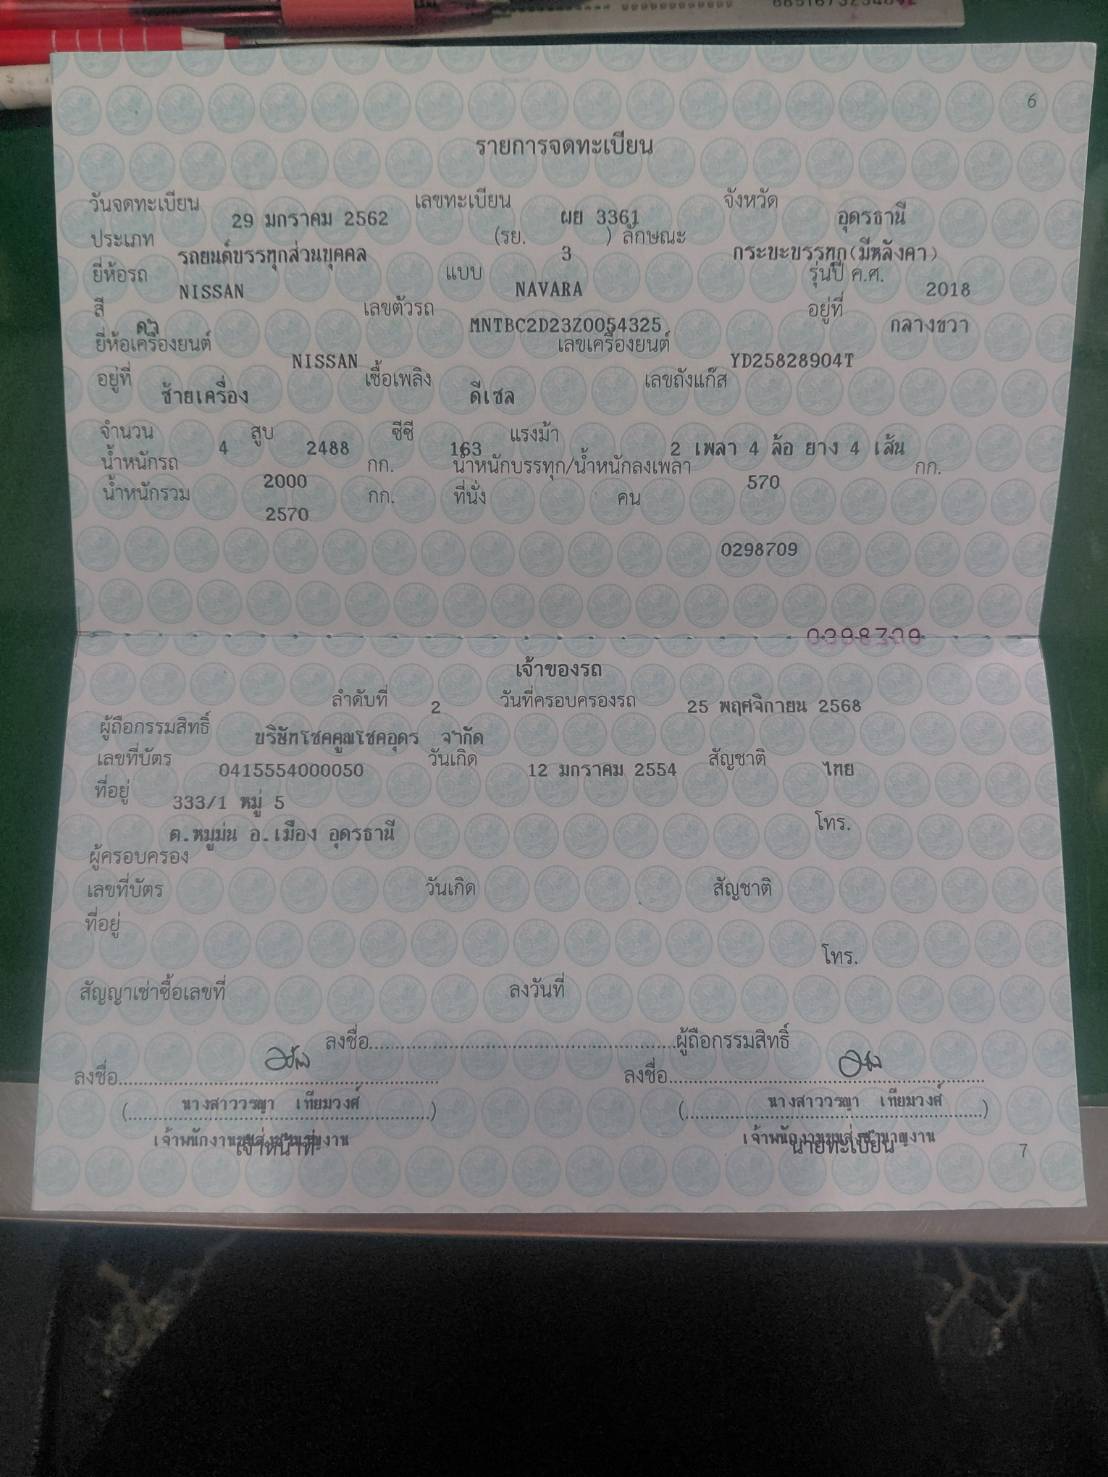 6
รายการจดทะเบียน
วันจดทะเบียน 29 มกราคม 2562 เลขทะเบียน ผย 3361 จังหวัด อุดรธานี
ประเภท รถยนต์บรรทุกส่วนบุคคล (รย. 3 ) ลักษณะ กระบะบรรทุก(มีหลังคา)
ยี่ห้อรถ NISSAN แบบ NAVARA รุ่นปี ค.ศ. 2018
สี ดำ เลขตัวรถ MNTBC2D23Z0054325 อยู่ที่ กลางขวา
ยี่ห้อเครื่องยนต์ NISSAN เลขเครื่องยนต์ YD25828904T
อยู่ที่ ซ้ายเครื่อง เชื้อเพลิง ดีเซล เลขถังแก๊ส
จำนวน 4 สูบ 2488 ซีซี 163 แรงม้า 2 เพลา 4 ล้อ ยาง 4 เส้น
น้ำหนักรถ 2000 กก. น้ำหนักบรรทุก/น้ำหนักลงเพลา 570 กก.
น้ำหนักรวม 2570 กก. ที่นั่ง คน
0298709
เจ้าของรถ
ลำดับที่ 2 วันที่ครอบครองรถ 25 พฤศจิกายน 2568
ผู้ถือกรรมสิทธิ์ บริษัทโชคคูณโชคอุดร จำกัด
เลขที่บัตร 0415554000050 วันเกิด 12 มกราคม 2554 สัญชาติ ไทย
ที่อยู่ 333/1 หมู่ 5
ต.หมูม่น อ.เมือง อุดรธานี โทร.
ผู้ครอบครอง
เลขที่บัตร วันเกิด สัญชาติ
ที่อยู่
โทร.
สัญญาเช่าซื้อเลขที่ ลงวันที่
ลงชื่อ ผู้ถือกรรมสิทธิ์
ลงชื่อ ลงชื่อ
(นางสาววรญา เทียมวงศ์) (นางสาววรญา เทียมวงศ์)
เจ้าพนักงานขนส่งชำนาญงาน เจ้าพนักงานขนส่งชำนาญงาน
เจ้าหน้าที่ นายทะเบียน 7